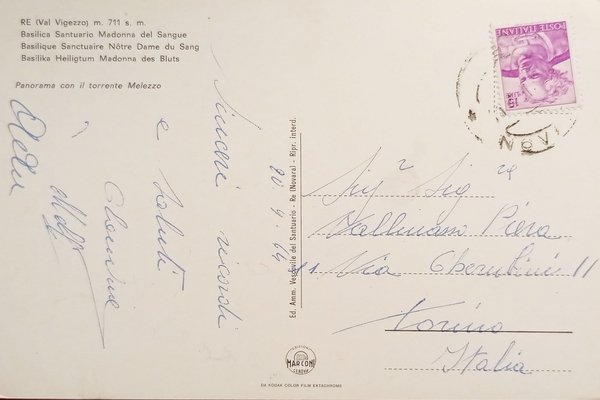 RE (Val Vigezzo) m. 711 s. m.
Basilica Santuario Madonna del Sangue
Basilique Sanctuaire Nôtre Dame du Sang
Basilika Heiligtum Madonna des Bluts
Panorama con il torrente Melezzo
Sinceri ricordi
e saluti
20.9.64
Ed. Amm. Vescovile del Santuario - Re (Novara) - Ripr. interd.
POSTE ITALIANE
Sig.
Vallinasso Piera
Via Cherubini 11
Torino
Italia
MARCONI
GENOVA
DA KODAK COLOR FILM EKTACHROME